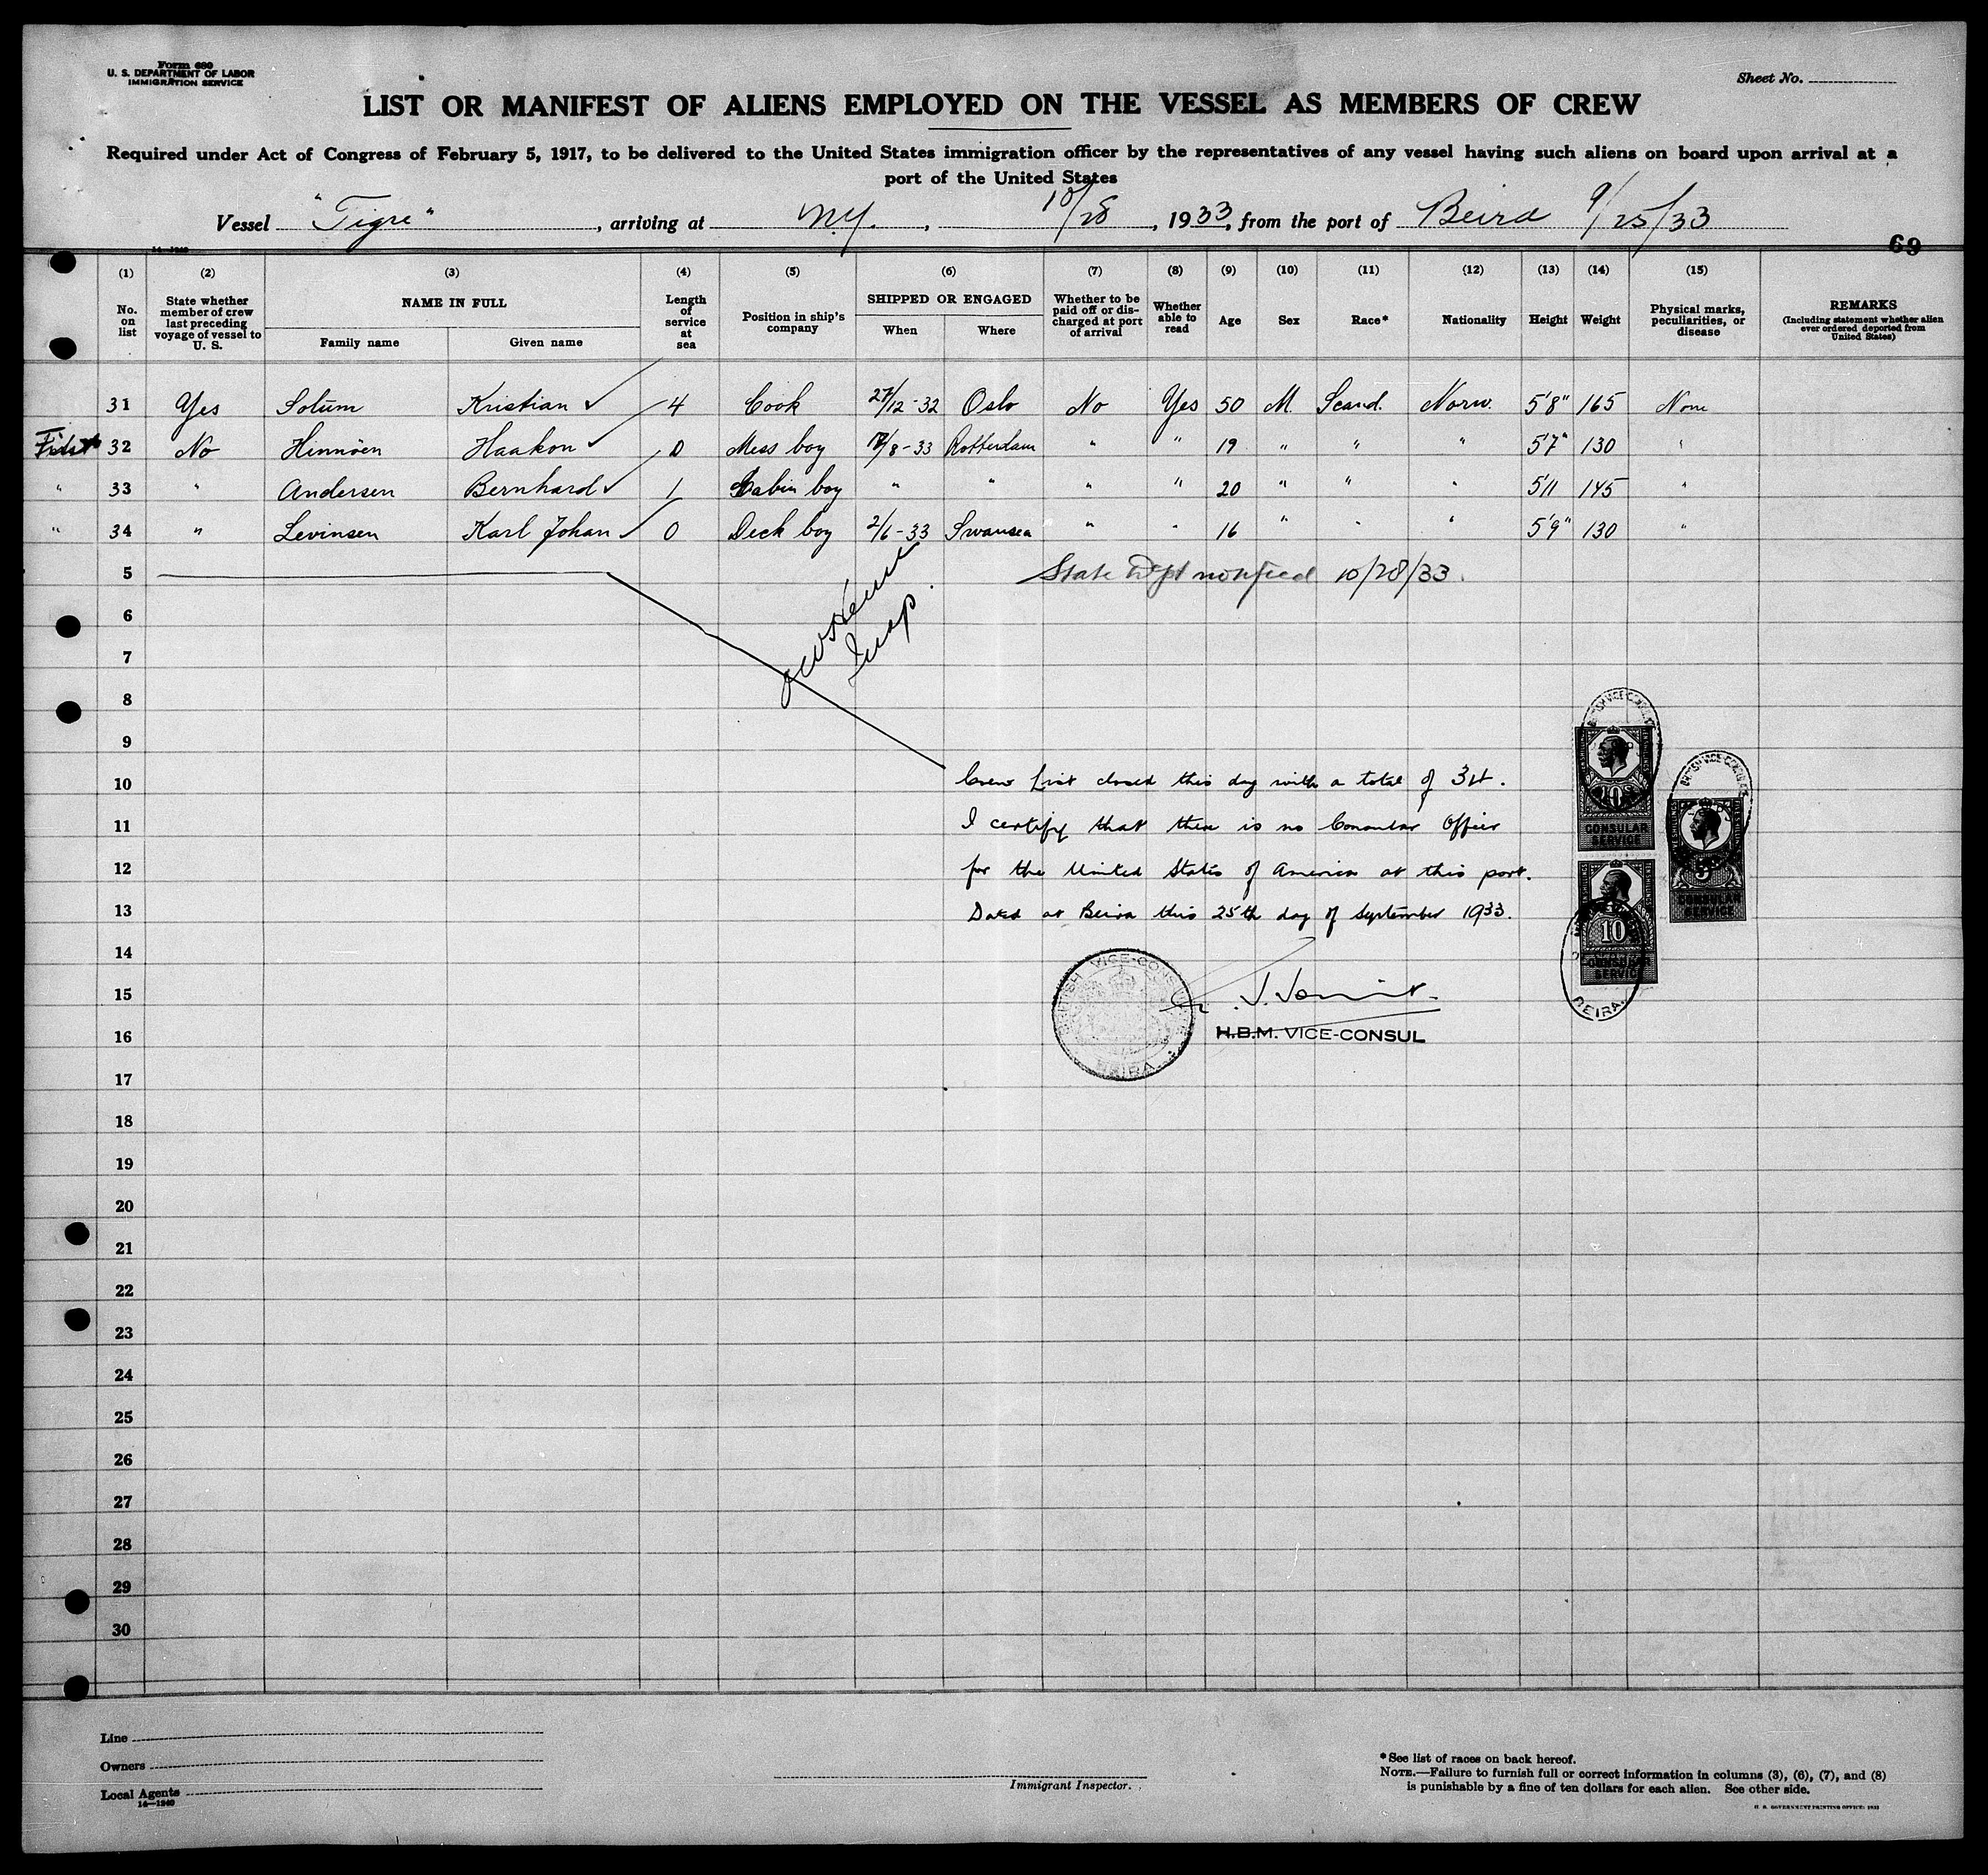 Form 680
U. S. DEPARTMENT OF LABOR
IMMIGRATION SERVICE
Sheet No.
LIST OR MANIFEST OF ALIENS EMPLOYED ON THE VESSEL AS MEMBERS OF CREW
Required under Act of Congress of February 5, 1917, to be delivered to the United States immigration officer by the representatives of any vessel having such aliens on board upon arrival at a
port of the United States
Vessel "Tigre", arriving at N.Y., 10/28, 1933, from the port of Beira 9/25/33
14—1240
69
(1) (2) (3) (4) (5) (6) (7) (8) (9) (10) (11) (12) (13) (14) (15)
No. on list
State whether member of crew last preceding voyage of vessel to U. S.
NAME IN FULL
Family name
Given name
Length of service at sea
Position in ship's company
SHIPPED OR ENGAGED
When
Where
Whether to be paid off or discharged at port of arrival
Whether able to read
Age
Sex
Race*
Nationality
Height
Weight
Physical marks, peculiarities, or disease
REMARKS
(Including statement whether alien ever ordered deported from United States)
31 Yes Solum Kristian 4 Cook 27/12-32 Oslo No Yes 50 M. Scand. Norw. 5'8" 165 None
First 32 No Hinnöen Haakon 0 Mess boy /8-33 Rotterdam " " 19 " " " 5'7" 130 "
" 33 " Andersen Bernhard 1 Cabin boy " " " " 20 " " " 5'11 145 "
" 34 " Levinsen Karl Johan 0 Deck boy 2/6-33 Swansea " " 16 " " " 5'9" 130 "
5 State Dept notified 10/28/33.
6
Insp.
7
8
9
10 Crew List closed this day with a total of 34.
11 I certify that there is no Consular Officer
12 for the United States of America at this port.
13 Dated at Beira this 25th day of September 1933.
14
15
H.B.M. VICE-CONSUL
16
BRITISH VICE-CONSULATE
BEIRA
BRITISH VICE-CONSULATE
CONSULAR
SERVICE
BRITISH VICE-CONSULATE
CONSULAR
SERVICE
10
CONSULAR
SERVICE
BEIRA
17
18
19
20
21
22
23
24
25
26
27
28
29
30
Line
Owners
Local Agents
14—1240
Immigrant Inspector.
*See list of races on back hereof.
NOTE.—Failure to furnish full or correct information in columns (3), (6), (7), and (8)
is punishable by a fine of ten dollars for each alien. See other side.
U. S. GOVERNMENT PRINTING OFFICE: 1932